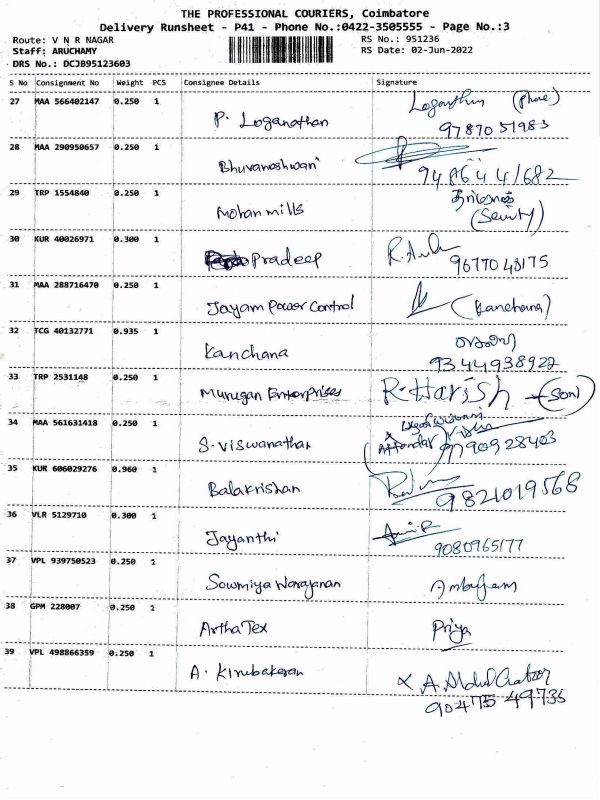 THE PROFESSIONAL COURIERS, Coimbatore
Delivery Runsheet - P41 - Phone No.:0422-3505555 - Page No.:3
Route: V N R NAGAR RS No.: 951236
Staff: ARUCHAMY RS Date: 02-Jun-2022
DRS No.: DCJB95123603
S No Consignment No Weight PCS Consignee Details Signature
27 MAA 566402147 0.250 1 P. Loganathan (Phone)
9787051983
28 MAA 290950657 0.250 1 Bhuvaneshwari
29 TRP 1554840 0.250 1 Mohan mills
30 KUR 40026971 0.300 1 Pradeep
31 MAA 288716470 0.250 1 Jayam Power Control (Kanchana)
32 TCG 40132771 0.935 1 Kanchana
9344938922
33 TRP 2531148 0.250 1 Murugan Enterprises R. Harish (Son)
34 MAA 561631418 0.250 1 S. Viswanathan
35 KUR 606029276 0.960 1 Balakrishan
9821019568
36 VLR 5129710 0.300 1 Jayanthi
9080965177
37 VPL 939750523 0.250 1 Sowmiya Narayanan
38 GPM 228007 0.250 1 Artha Tex Priya
39 VPL 498866359 0.250 1 A. Kirubakaran
90475 49735